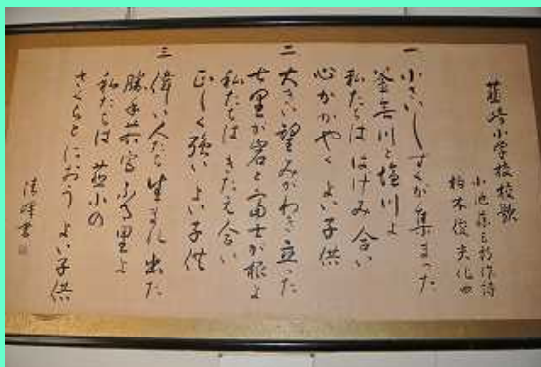 韮崎小学校校歌
小池藤五郎作詩
柏木俊夫作曲
一 小さいしずくが集まった
釜無川と塩川よ
私たちは はげみ合い
心かがやく よい子供
二 大きい望みがわき立った
七里が岩と富士が根よ
私たちは きたえ合い
正しく強い よい子供
三 偉い人たち生まれ出た
勝手 宮ある里よ
私たちは 韮小の
さくらとにおう よい子供
清峰書